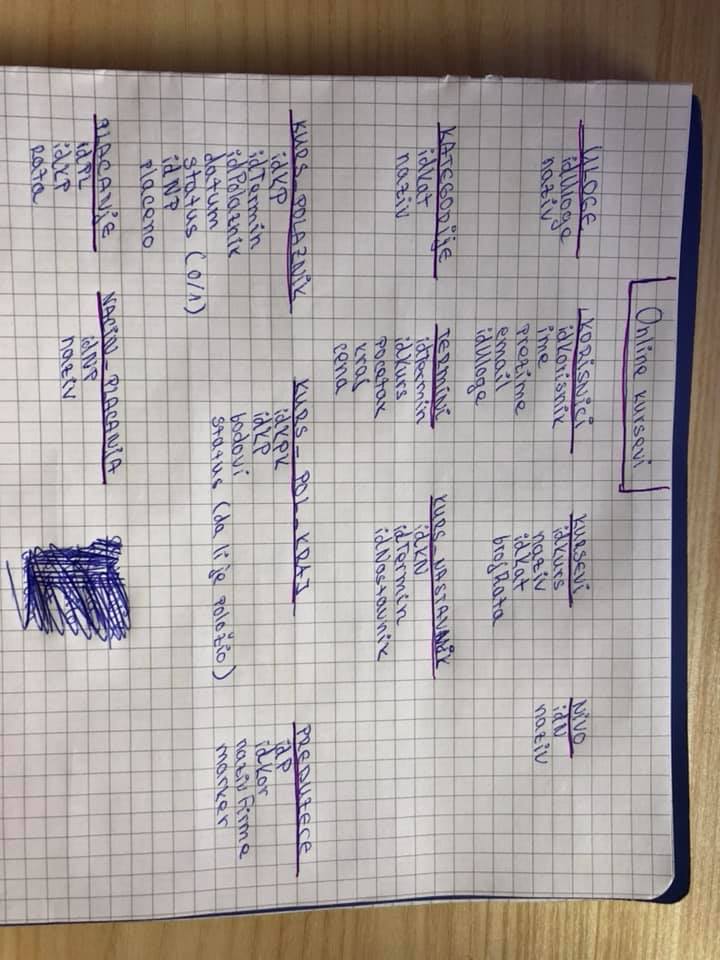 Online kursevi
ULOGE
idUloge
naziv
KORISNICI
idKorisnik
ime
prezime
email
idUloge
KURSEVI
idKurs
naziv
idKat
brojRata
NIVO
idN
naziv
KATEGORIJE
idKat
naziv
TERMINI
idTermin
idKurs
pocetak
kraj
cena
KURS_NASTAVNIK
idKN
idTermin
idNastavnik
KURS_POLAZNIK
idKP
idTermin
idPolaznik
datum
status (0/1)
idNP
placeno
KURS_POL_KRAJ
idKPK
idKP
bodovi
status (da li je položio)
PREDUZECE
idP
idKor
nazivFirme
marker
PLACANJE
idPL
idKP
rata
NACIN_PLACANJA
idNP
naziv